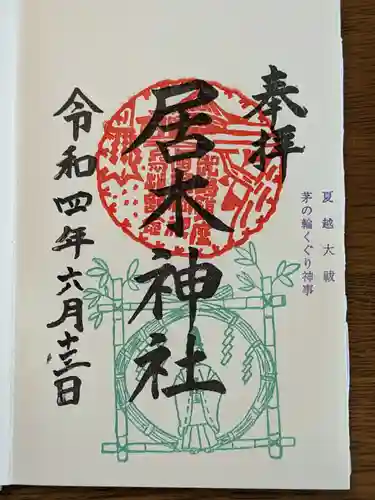 奉拝
居木神社
令和四年六月十三日
夏越大祓
茅の輪くぐり神事